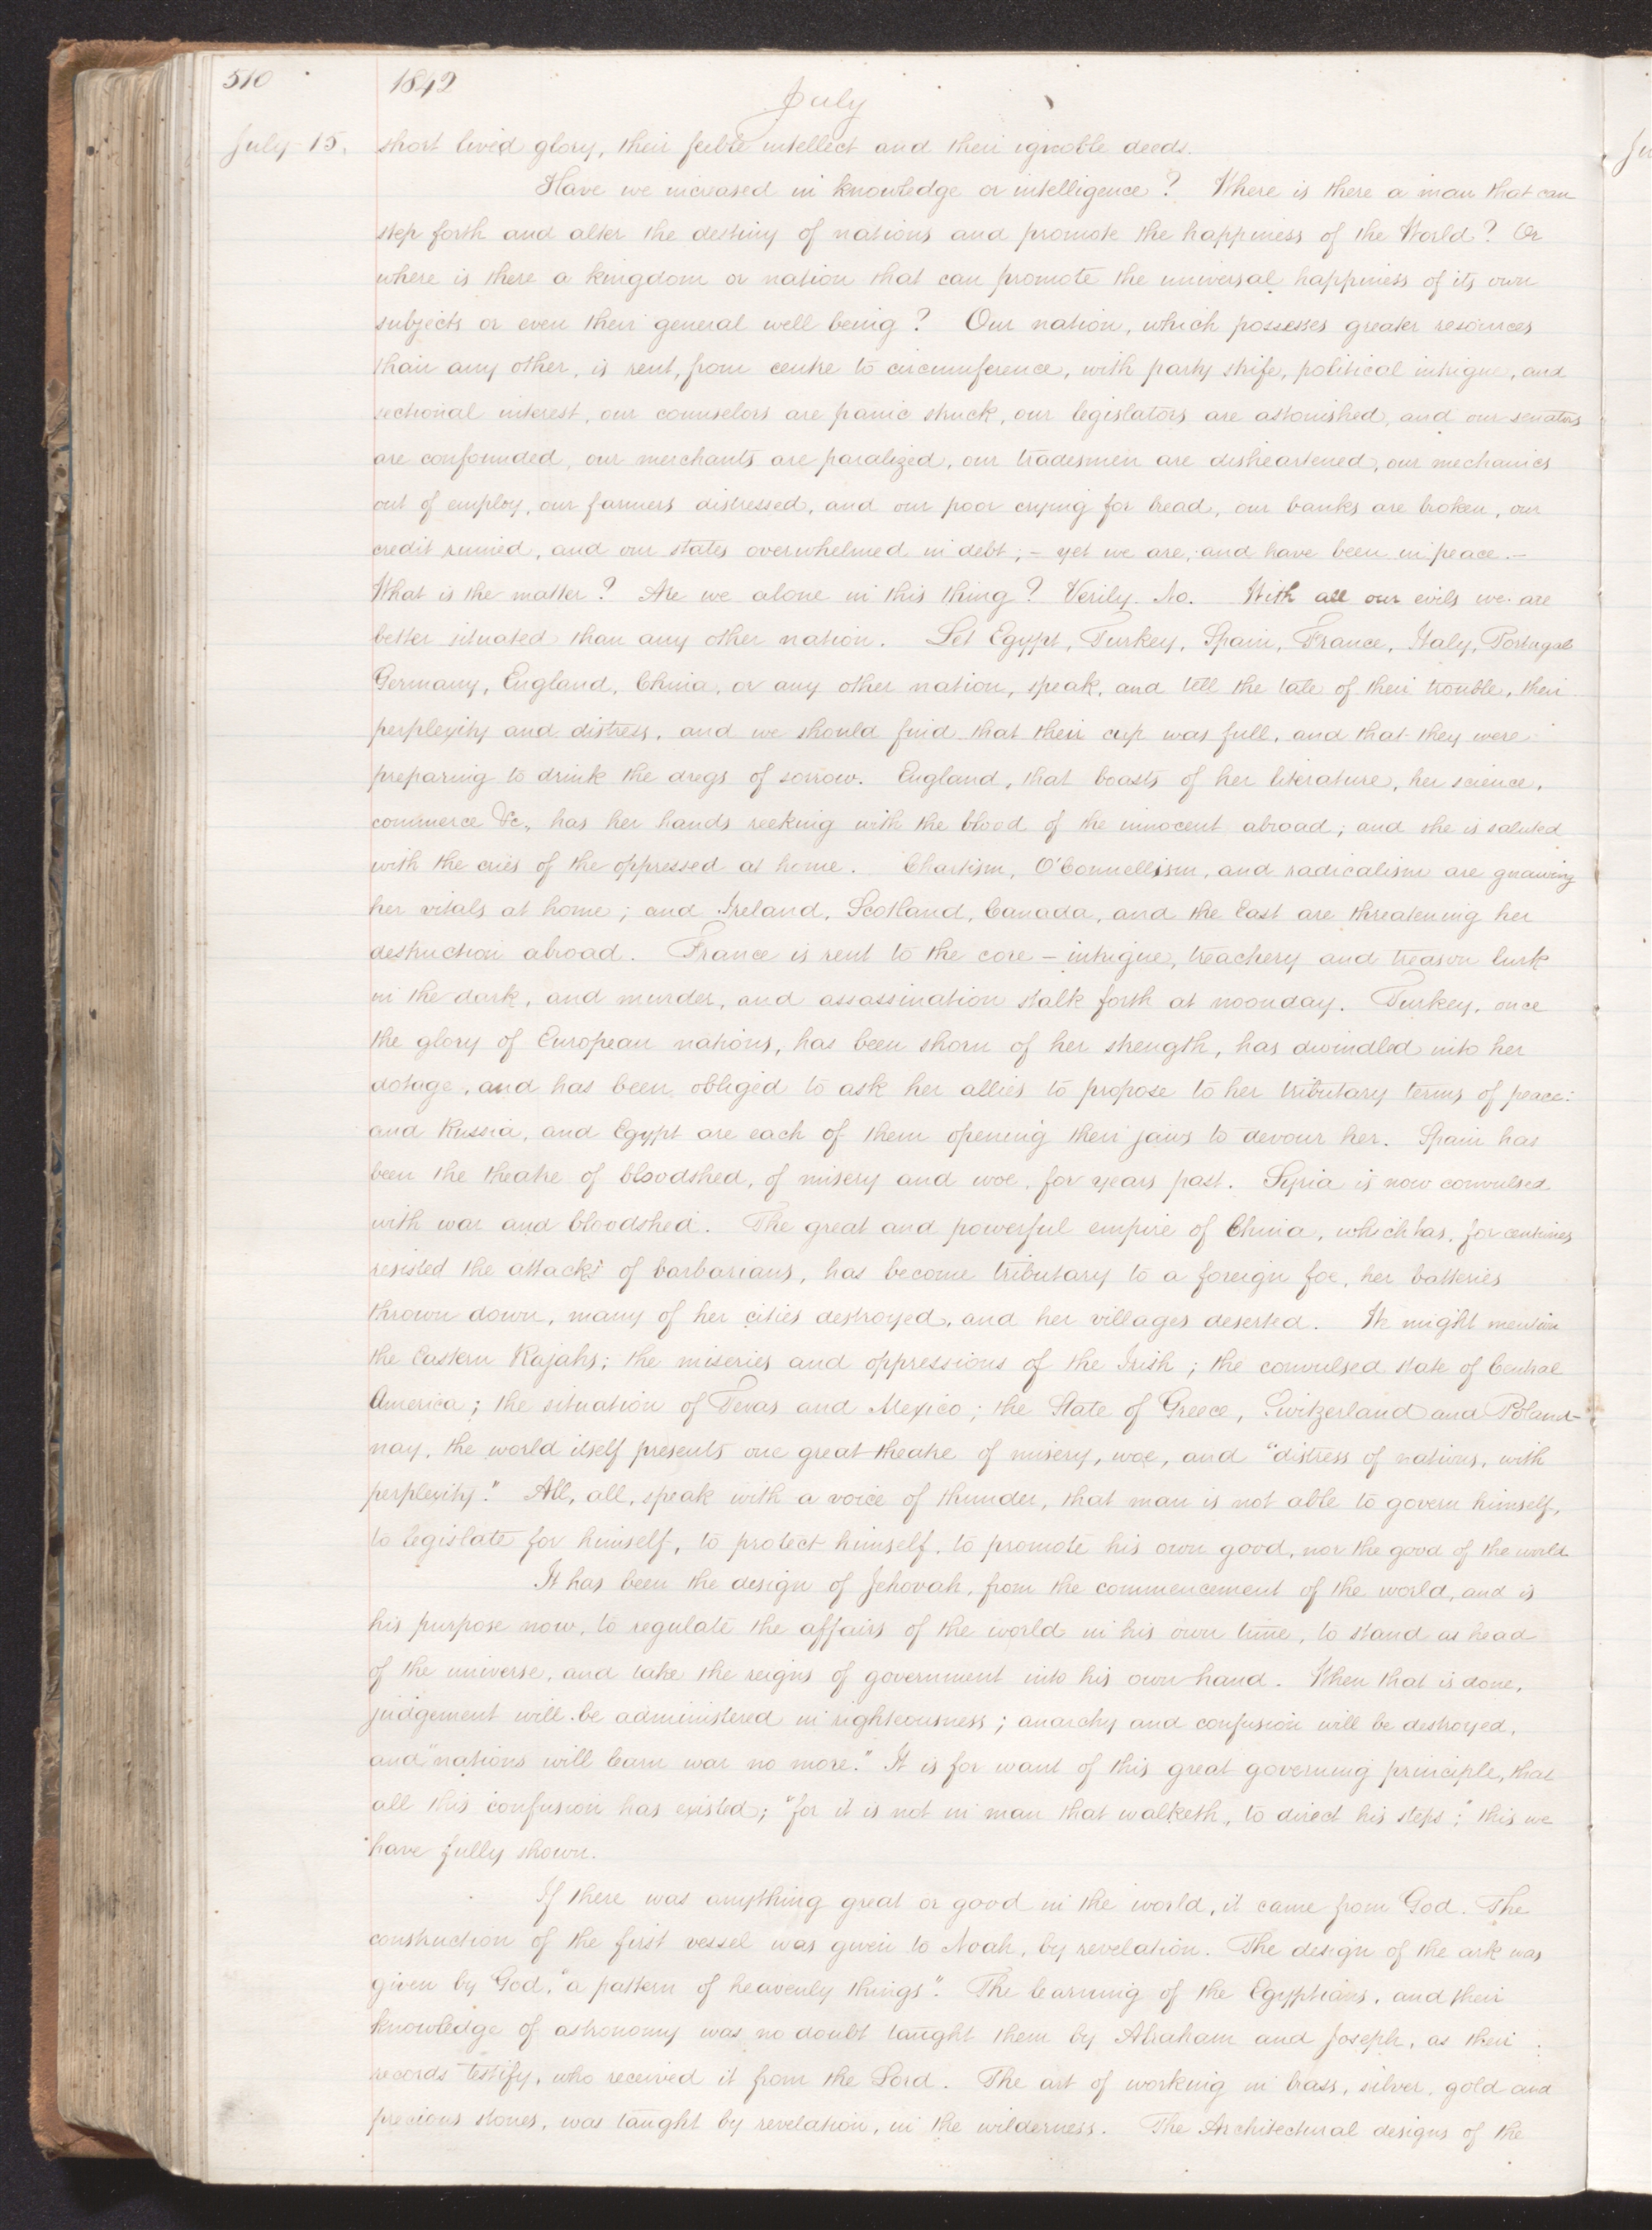 510 1842
July
July 15. short lived glory, their feeble intellect and their ignoble deeds.
Have we increased in knowledge or intelligence? Where is there a man that can
step forth and alter the destiny of nations and promote the happiness of the World? Or
where is there a kingdom or nation that can promote the universal happiness of its own
subjects or even their general well being? Our nation, which possesses greater resources
than any other, is rent, from centre to circumference, with party strife, political intrigue, and
sectional interest, our counselors are panic struck, our legislators are astonished, and our senators
are confounded, our merchants are paralized, our tradesmen are disheartened, our mechanics
out of employ, our farmers distressed, and our poor crying for bread, our banks are broken, our
credit ruined, and our states overwhelmed in debt; – yet we are, and have been in peace. –
What is the matter? Are we alone in this thing? Verily No. With all our evils we are
better situated than any other nation. Let Egypt, Turkey, Spain, France, Italy, Portugal
Germany, England, China, or any other nation, speak, and tell the tale of their trouble, their
perplexity and distress, and we should find that their cup was full, and that they were
preparing to drink the dregs of sorrow. England, that boasts of her literature, her science,
commerce &c., has her hands reeking with the blood of the innocent abroad; and she is saluted
with the cries of the oppressed at home. Chartism, O'Connellism, and radicalism are gnawing
her vitals at home; and Ireland, Scotland, Canada, and the East are threatening her
destruction abroad. France is rent to the core – intrigue, treachery and treason lurk
in the dark, and murder, and assassination stalk forth at noonday. Turkey, once
the glory of European nations, has been shorn of her strength, has dwindled into her
dotage, and has been obliged to ask her allies to propose to her tributary terms of peace:
and Russia, and Egypt are each of them opening their jaws to devour her. Spain has
been the theatre of bloodshed, of misery and woe, for years past. Syria is now convulsed
with war and bloodshed. The great and powerful empire of China, which has, for centuries
resisted the attacks of barbarians, has become tributary to a foreign foe, her batteries
thrown down, many of her cities destroyed, and her villages deserted. We might mention
the Eastern Rajahs; the miseries and oppressions of the Irish; the convulsed state of Central
America; the situation of Texas and Mexico; the State of Greece, Switzerland and Poland–
nay, the world itself presents one great theatre of misery, woe, and "distress of nations, with
perplexity." All, all, speak with a voice of thunder, that man is not able to govern himself,
to legislate for himself, to protect himself, to promote his own good, nor the good of the world
It has been the design of Jehovah, from the commencement of the world, and is
his purpose now, to regulate the affairs of the world in his own time, to stand as head
of the universe, and take the reigns of government into his own hand. When that is done,
judgement will be administered in righteousness; anarchy and confusion will be destroyed,
and "nations will learn war no more." It is for want of this great governing principle, that
all this confusion has existed; "for it is not in man that walketh, to direct his steps;" this we
have fully shown.
If there was anything great or good in the world, it came from God. The
construction of the first vessel was given to Noah, by revelation. The design of the ark was
given by God, "a pattern of heavenly things". The learning of the Egyptians, and their
knowledge of astronomy was no doubt taught them by Abraham and Joseph, as their
records testify, who received it from the Lord. The art of working in brass, silver, gold and
precious stones, was taught by revelation, in the wilderness. The Architectural designs of the